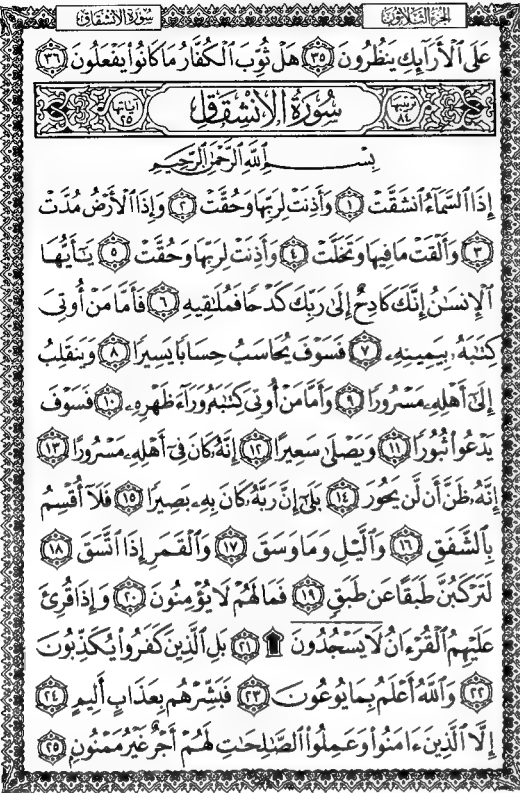 الجزء الثلاثون
سورة الانشقاق
عَلَى ٱلْأَرَآئِكِ يَنظُرُونَ ٣٥ هَلْ ثُوِّبَ ٱلْكُفَّارُ مَا كَانُوا۟ يَفْعَلُونَ ٣٦
ترتيبها ٨٤ سُورَةُ الِانْشِقَاقِ آياتها ٢٥
بِسْمِ ٱللَّهِ ٱلرَّحْمَٰنِ ٱلرَّحِيمِ
إِذَا ٱلسَّمَآءُ ٱنشَقَّتْ ١ وَأَذِنَتْ لِرَبِّهَا وَحُقَّتْ ٢ وَإِذَا ٱلْأَرْضُ مُدَّتْ
٣ وَأَلْقَتْ مَا فِيهَا وَتَخَلَّتْ ٤ وَأَذِنَتْ لِرَبِّهَا وَحُقَّتْ ٥ يَٰٓأَيُّهَا
ٱلْإِنسَٰنُ إِنَّكَ كَادِحٌ إِلَىٰ رَبِّكَ كَدْحًا فَمُلَٰقِيهِ ٦ فَأَمَّا مَنْ أُوتِىَ
كِتَٰبَهُۥ بِيَمِينِهِۦ ٧ فَسَوْفَ يُحَاسَبُ حِسَابًا يَسِيرًا ٨ وَيَنقَلِبُ
إِلَىٰٓ أَهْلِهِۦ مَسْرُورًا ٩ وَأَمَّا مَنْ أُوتِىَ كِتَٰبَهُۥ وَرَآءَ ظَهْرِهِۦ ١٠ فَسَوْفَ
يَدْعُوا۟ ثُبُورًا ١١ وَيَصْلَىٰ سَعِيرًا ١٢ إِنَّهُۥ كَانَ فِىٓ أَهْلِهِۦ مَسْرُورًا ١٣
إِنَّهُۥ ظَنَّ أَن لَّن يَحُورَ ١٤ بَلَىٰٓ إِنَّ رَبَّهُۥ كَانَ بِهِۦ بَصِيرًا ١٥ فَلَآ أُقْسِمُ
بِٱلشَّفَقِ ١٦ وَٱلَّيْلِ وَمَا وَسَقَ ١٧ وَٱلْقَمَرِ إِذَا ٱتَّسَقَ ١٨
لَتَرْكَبُنَّ طَبَقًا عَن طَبَقٍ ١٩ فَمَا لَهُمْ لَا يُؤْمِنُونَ ٢٠ وَإِذَا قُرِئَ
عَلَيْهِمُ ٱلْقُرْءَانُ لَا يَسْجُدُونَ ۩ ٢١ بَلِ ٱلَّذِينَ كَفَرُوا۟ يُكَذِّبُونَ
٢٢ وَٱللَّهُ أَعْلَمُ بِمَا يُوعُونَ ٢٣ فَبَشِّرْهُم بِعَذَابٍ أَلِيمٍ ٢٤
إِلَّا ٱلَّذِينَ ءَامَنُوا۟ وَعَمِلُوا۟ ٱلصَّٰلِحَٰتِ لَهُمْ أَجْرٌ غَيْرُ مَمْنُونٍ ٢٥